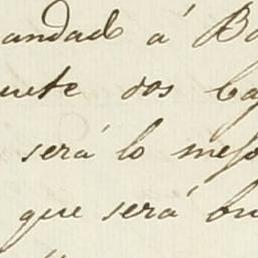 andad á Ba
uete dos ca
será lo mejo
que será bu